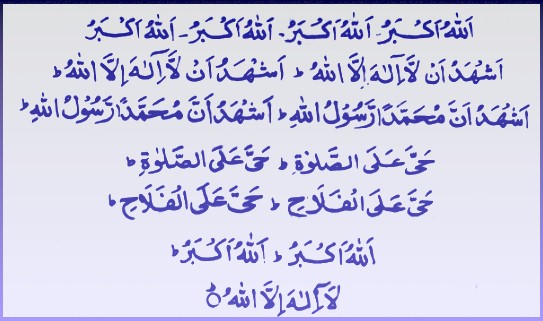 اَللهُ اَكْبَرُ۔ اَللهُ اَكْبَرُ۔ اَللهُ اَكْبَرُ۔ اَللهُ اَكْبَرُ
اَشْهَدُ اَنْ لَّآ اِلٰهَ اِلَّا اللهُ ؕ اَشْهَدُ اَنْ لَّآ اِلٰهَ اِلَّا اللهُ ؕ
اَشْهَدُ اَنَّ مُحَمَّدًا رَّسُوْلُ اللهِ ؕ اَشْهَدُ اَنَّ مُحَمَّدًا رَّسُوْلُ اللهِ ؕ
حَیَّ عَلَی الصَّلٰوةِ ؕ حَیَّ عَلَی الصَّلٰوةِ ؕ
حَیَّ عَلَی الْفَلَاحِ ؕ حَیَّ عَلَی الْفَلَاحِ ؕ
اَللهُ اَكْبَرُ ؕ اَللهُ اَكْبَرُ ؕ
لَآ اِلٰهَ اِلَّا اللهُ ؕ○